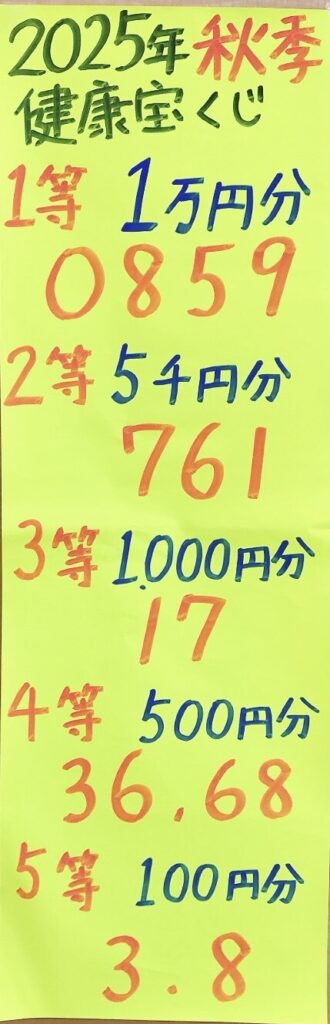 2025年秋季
健康宝くじ
1等 1万円分
0859
2等 5千円分
761
3等 1.000円分
17
4等 500円分
36.68
5等 100円分
3.8